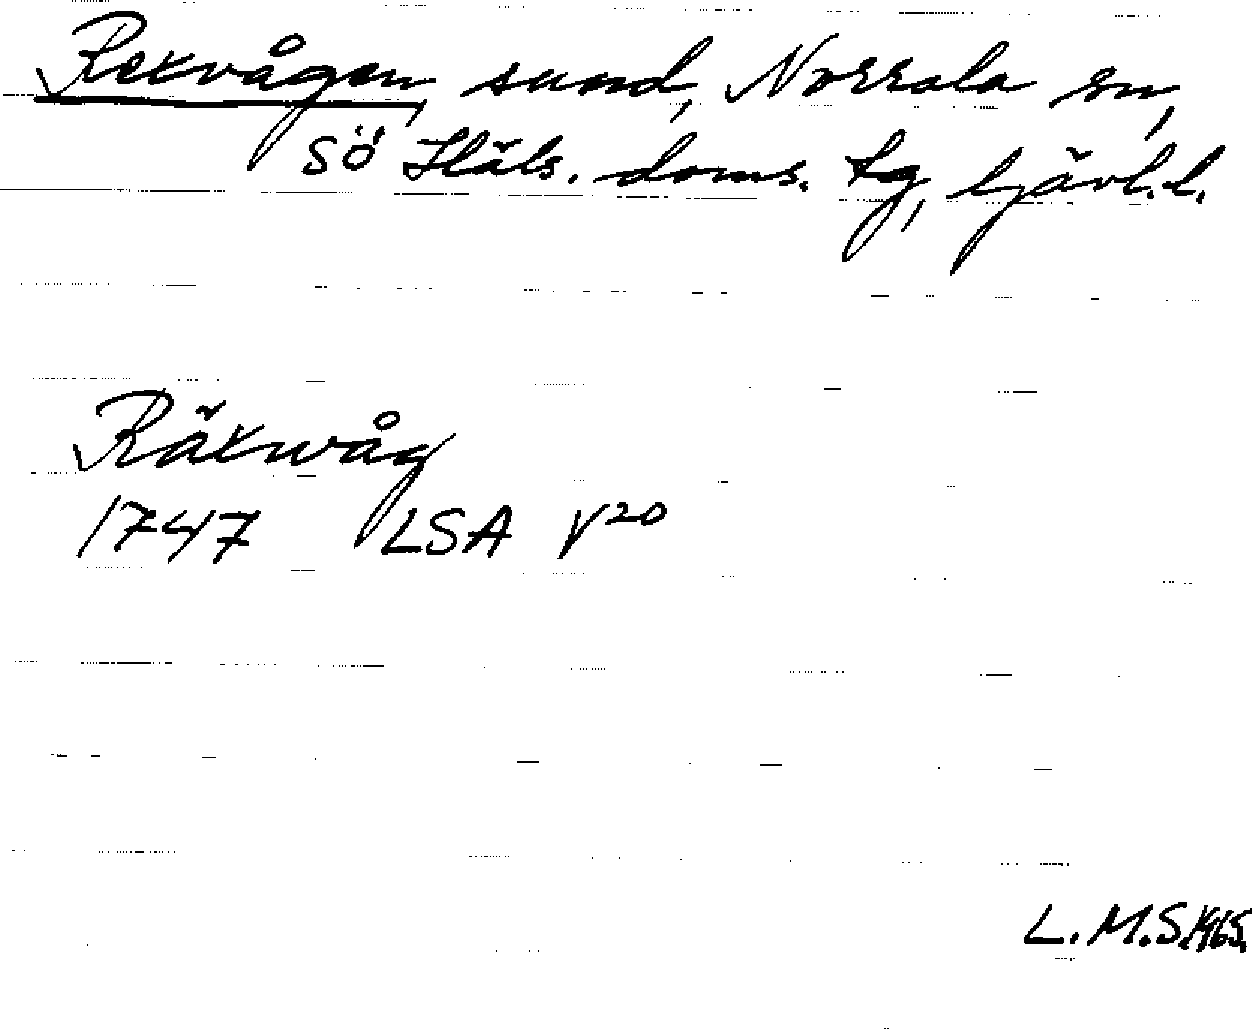 Rekvågen sund, Norrala sn,
Sö Häls. doms. tg, Gävl.l.
Räkwåg
1747 LSA V20
L.M.S. 1965.